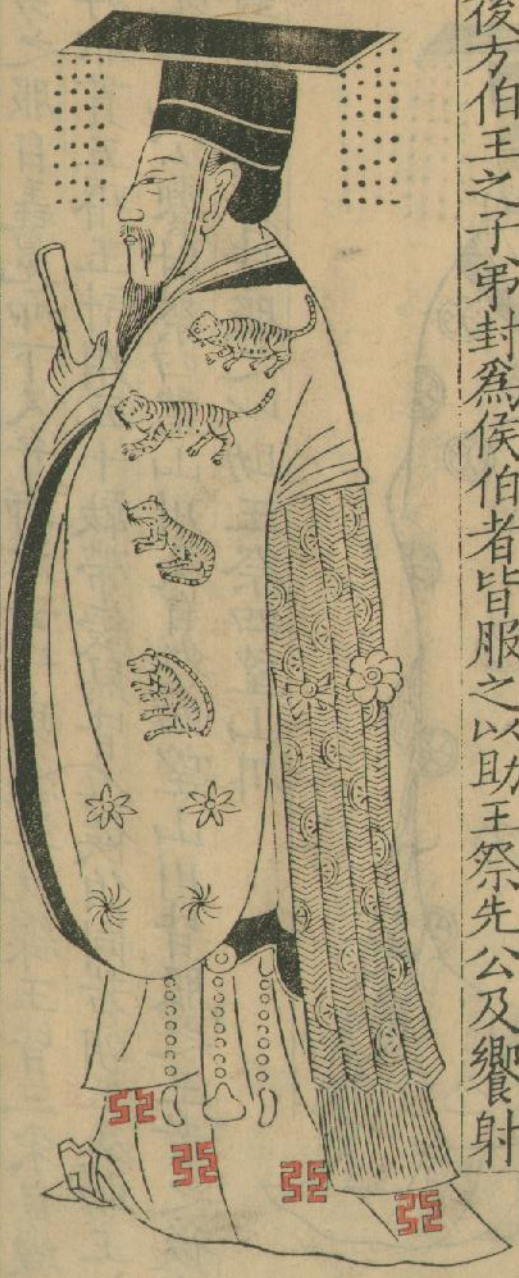 後方伯王之子弟封爲侯伯者皆服之以助王祭先公及饗射